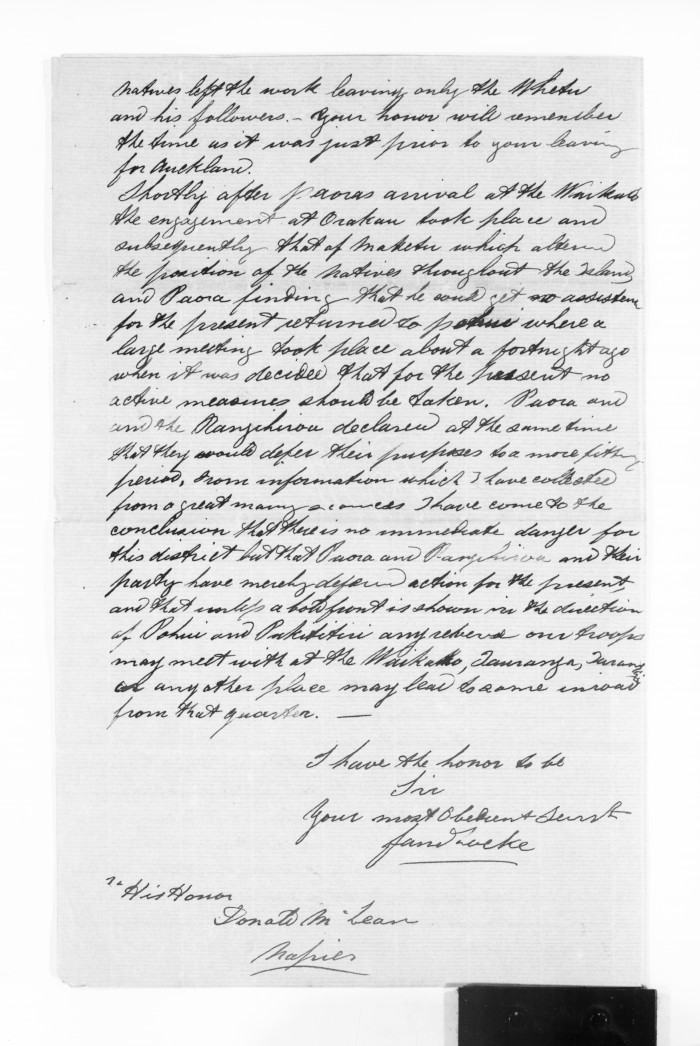 Natives left the work leaving only the Whetu
and his followers. – Your honor will remember
the time as it was just prior to your leaving
for Auckland.
Shortly after Paoras arrival at the Waikato
the engagement at Orakau took place and
subsequently that of Maketu which altered
the position of the Natives throughout the Island
and Paora finding that he could get no assistance
for the present returned to Pohui where a
large meeting took place about a fortnight ago
when it was decided that for the present no
active measures should be taken. Paora and
and the Rangihiroa declared at the same time
that they would defer their purposes to a more fitting
period, from information which I have collected
from a great many sources I have come to the
conclusion that there is no immediate danger for
this district but that Paora and Rangihiroa and their
party have merely defered action for the present,
and that unless a bold front is shown in the direction
of Pohui and Pukititiri any reverse our troops
may meet with at the Waikato, Tauranga,
or any other place may lead to some inroad
from that quarter. —
I have the honor to be
Sir
Your most Obedient Servt
Saml Locke
To His Honor
Donald McLean
Napier